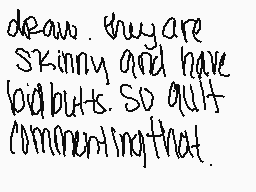 draw. they are
skinny and have
big butts. So quit
commenting that.